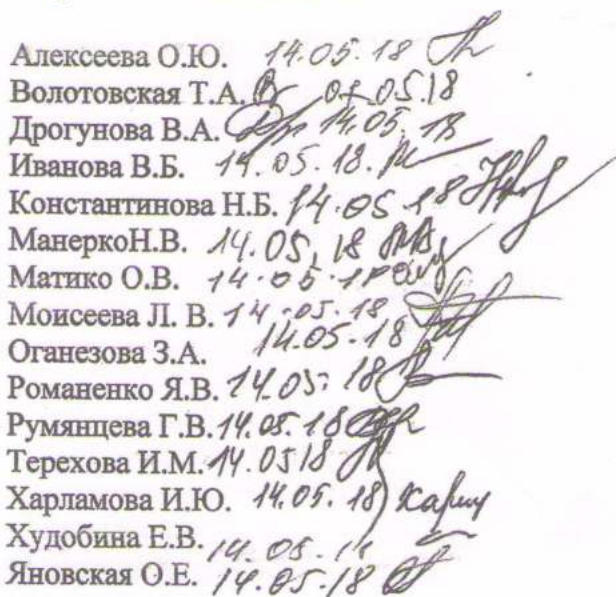 Алексеева О.Ю. 14.05.18
Волотовская Т.А. 05.18
Дрогунова В.А. 14.05.18
Иванова В.Б. 14.05.18.
Константинова Н.Б. 14.05.18
МанеркоН.В. 14.05.18
Матико О.В. 14.05.18
Моисеева Л. В. 14.05.18
Оганезова З.А. 14.05.18
Романенко Я.В. 14.05.18
Румянцева Г.В. 14.05.18
Терехова И.М. 14.0518
Харламова И.Ю. 14.05.18
Худобина Е.В. 14.05.
Яновская О.Е. 14.05.18